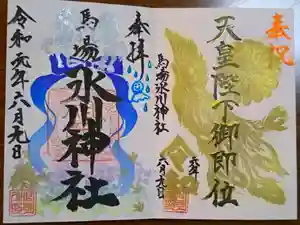 奉祝
天皇陛下御即位
馬場氷川神社
六月元日
奉拝
馬場
氷川神社
令和元年六月元日